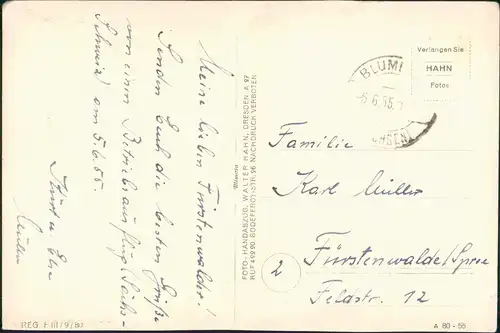 Meine lieben Fürstenwalder!
Senden Euch die besten Grüße
von einem Betriebsausflug (Sächs-
Schweiz) am 5.6.55.
Kurt u. Else
FOTO-HANDABZUG, WALTER HAHN, DRESDEN A 27
RUF 45290, GODEFFROY-STR. 26 NACHDRUCK VERBOTEN
BLUM
-6.6.55.
CHSEN
Verlangen Sie
HAHN
Fotos
Familie
Karl Müller
2
Fürstenwalde/Spree
Feldstr. 12
REG. F III/9/80
A 80-55